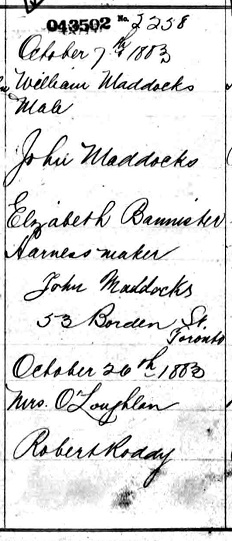 043502 No. 2258
October 7th 1883
William Maddocks
Male
John Maddocks
Elizabeth Bannister
Harness maker
John Maddocks
53 Borden St.
Toronto
October 26th 1883
Mrs. O'Loughlan
Robert Roddy